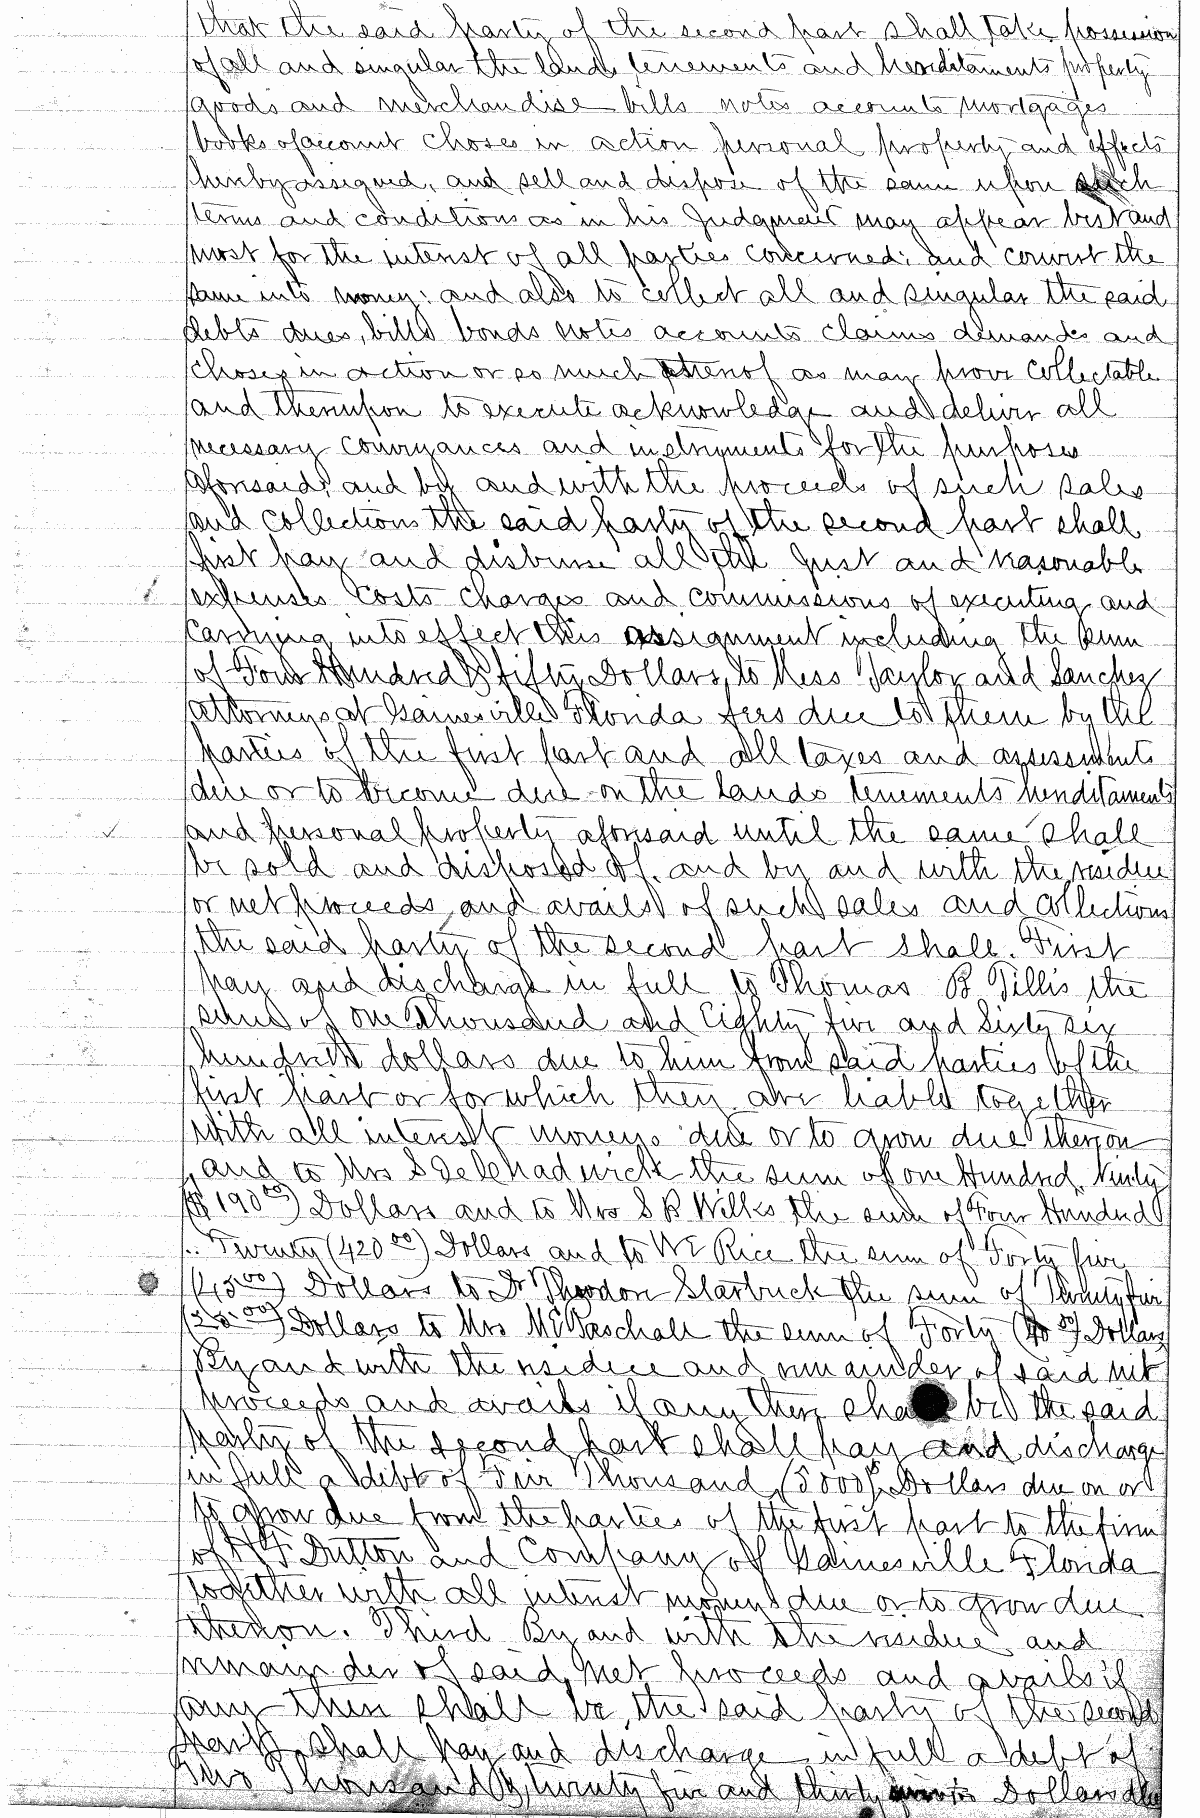 that the said party of the second part shall take possession
of all and singular the lands tenements and hereditaments property
goods and merchandise bills notes accounts mortgages
books of account choses in action personal property and effects
hereby assigned, and sell and dispose of the same upon such
terms and conditions as in his Judgment may appear best and
most for the interest of all parties concerned; and convert the
same into money; and also to collect all and singular the said
debts dues, bills bonds notes accounts claims demands and
choses in action or so much thereof as may prove collectable
and thereupon to execute acknowledge and deliver all
necessary conveyances and instruments for the purposes
aforesaid; and by and with the proceeds of such sales
and collections the said party of the second part shall
first pay and disburse all the Just and reasonable
expenses costs charges and commissions of executing and
carrying into effect this assignment including the sum
of Four Hundred & fifty Dollars, to Mess Taylor and Sanchez
attorneys at Gainesville Florida fees due to them by the
parties of the first part and all taxes and assessments
due or to become due on the lands tenements hereditaments
and personal property aforesaid until the same shall
be sold and disposed of. and by and with the residue
or net proceeds and avails of such sales and collections
the said party of the second part shall. First
pay and discharge in full to Thomas B Tillis the
sum of one Thousand and Eighty five and Sixty six
hundreth dollars due to him from said parties of the
first part or for which they are liable together
with all interest moneys due or to grow due thereon
and to Mrs S Chadwick the sum of one Hundred Ninty
($190 00) Dollars and to Mrs S B Wilks the sum of Four Hundred
Twenty (420 00) Dollars and to Wm Rice the sum of Forty five
(45 00) Dollars to Dr Theodore Starbuck the sum of Twenty five
(25.00) Dollars to Mrs McPaschall the sum of Forty (40 00) Dollars
By and with the residue and remainder of said net
proceeds and avails if any there shall be the said
party of the second part shall pay and discharge
in full a debt of Five Thousand (5000) Dollars due on or
to grow due from the parties of the first part to the firm
of H F Dutton and Company of Gainesville Florida
together with all interest moneys due or to grow due
thereon. Third By and with the residue and
remainder of said net proceeds and avails if
any there shall be, the said party of the second
party shall pay and discharge in full a debt of
Two Thousand & twenty five and thirty Dollars due